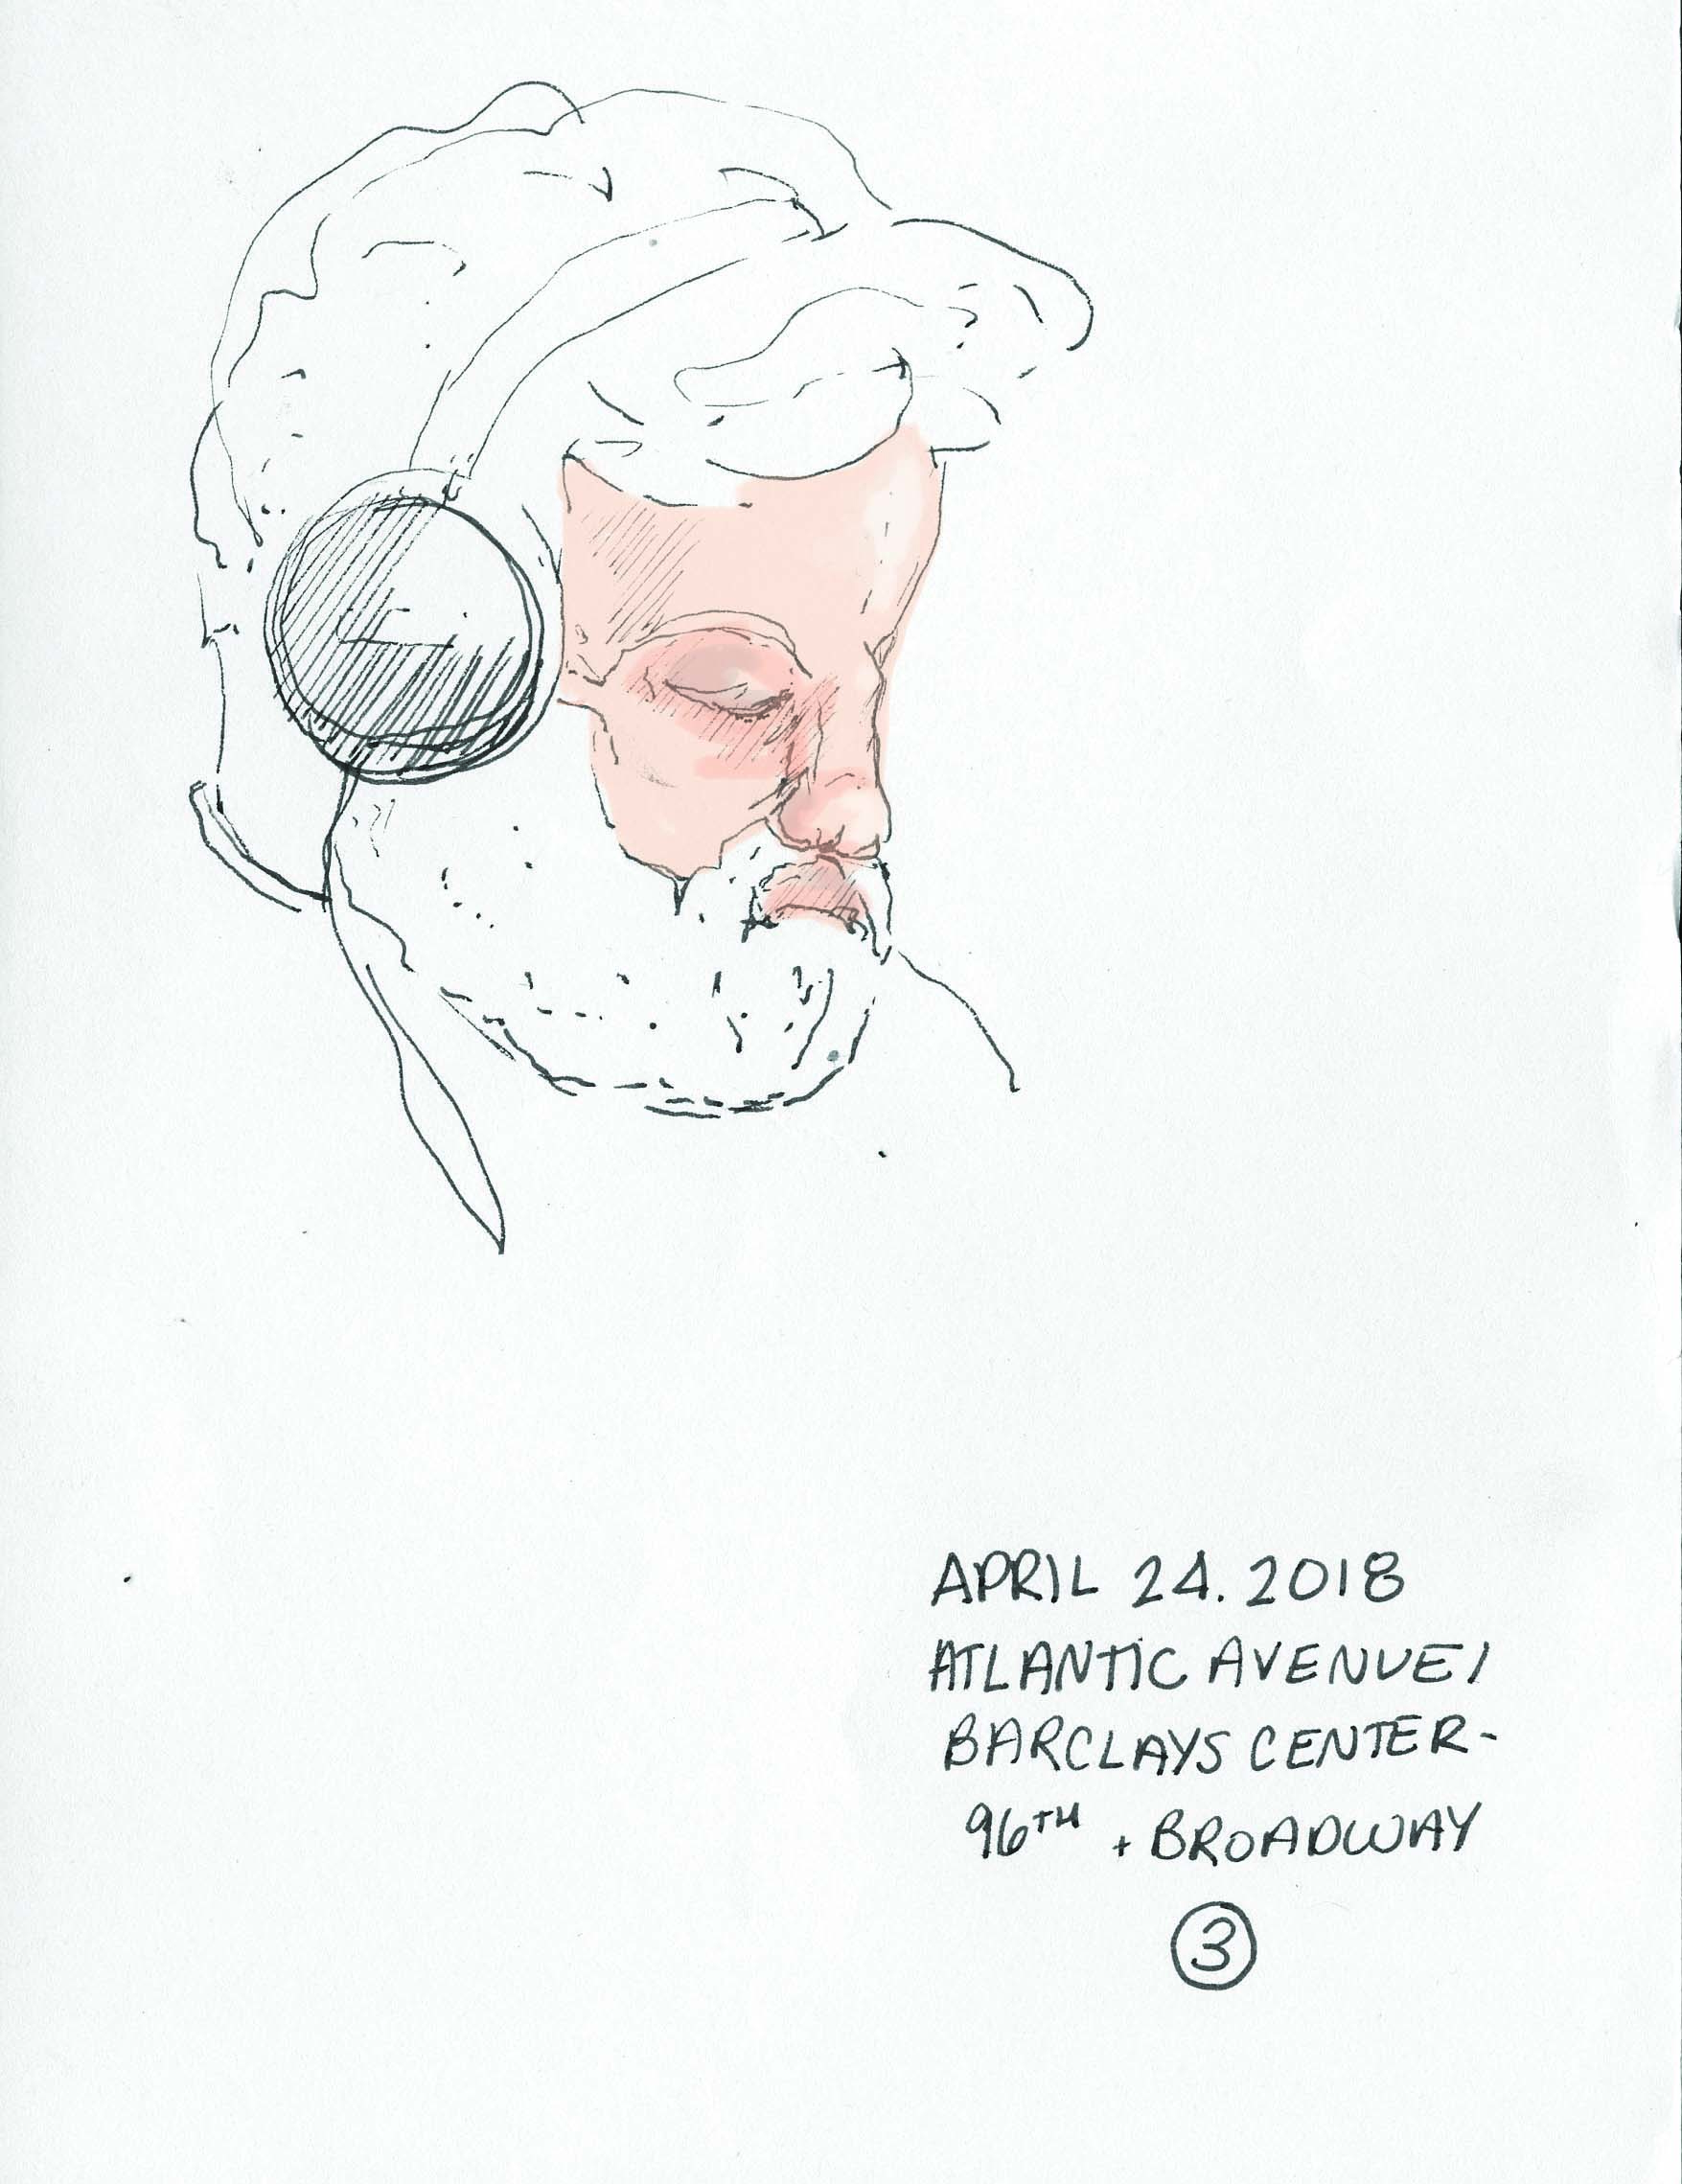 APRIL 24. 2018
ATLANTIC AVENUE/
BARCLAYS CENTER-
96TH + BROADWAY
3